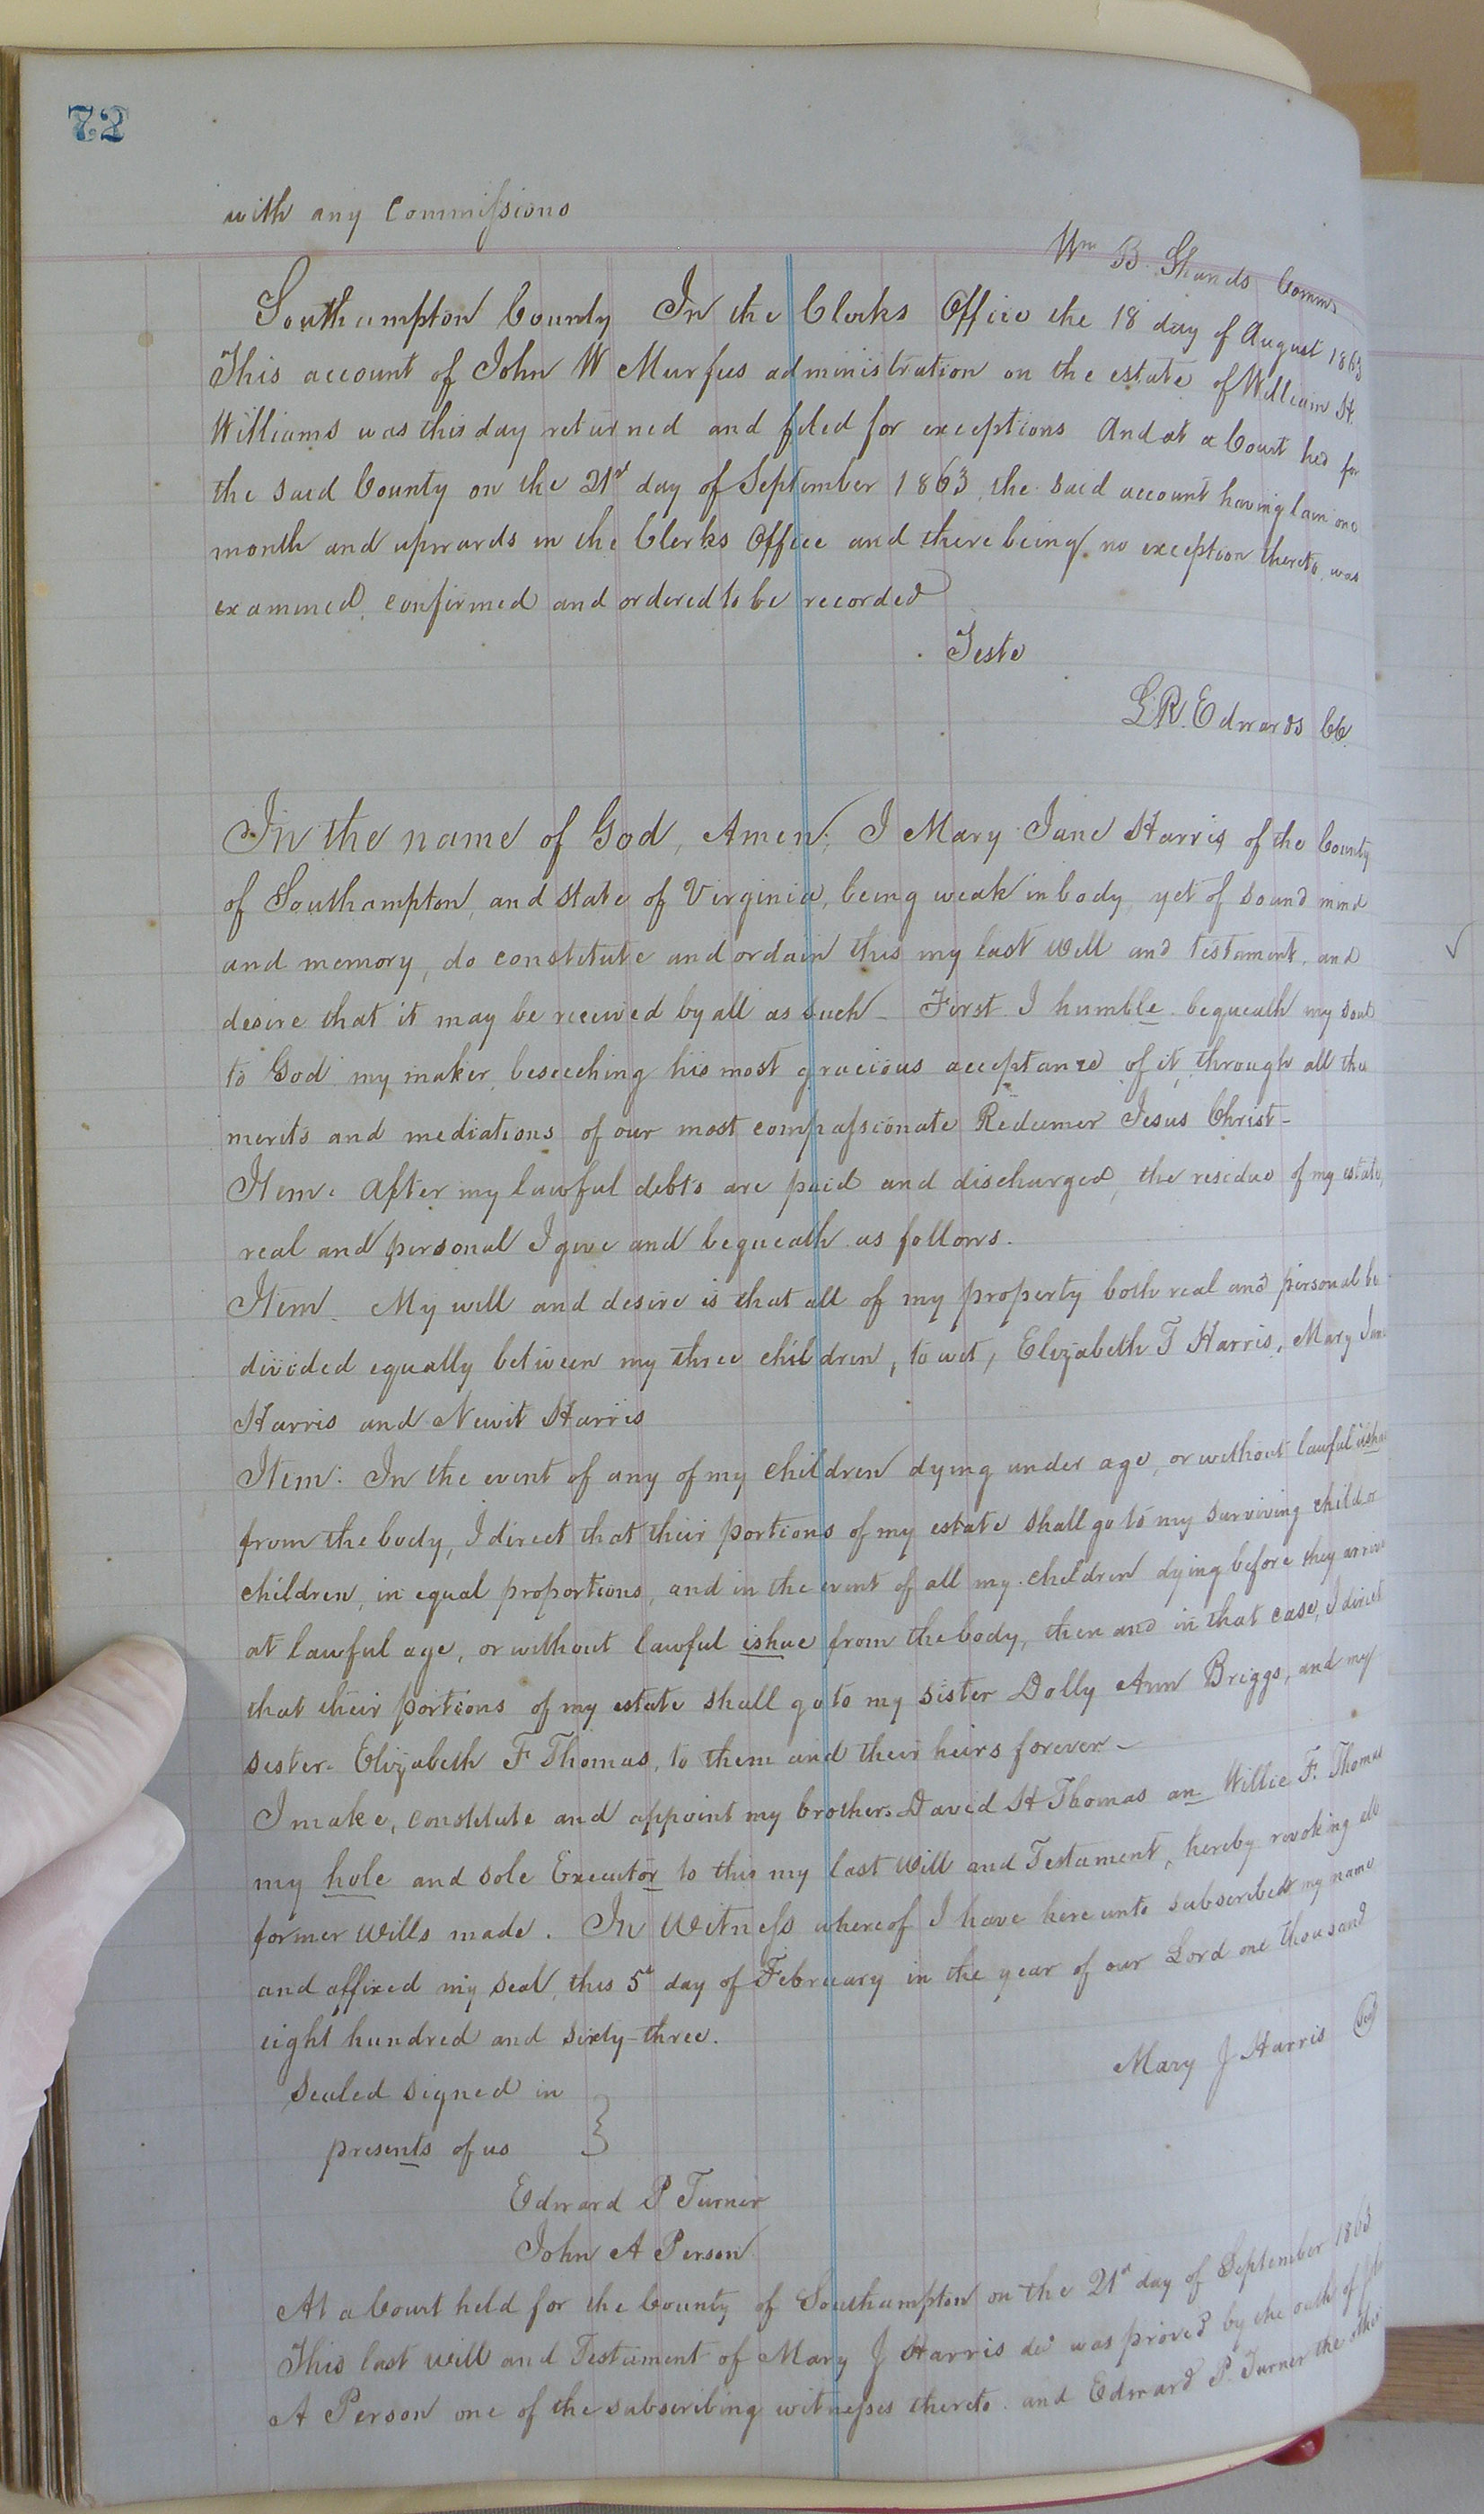 72
with any Commissions
Wm B. Shands Comms
Southampton County In the Clerks Office the 18 day of August 1863
This account of John W Murfees administration on the estate of William H.
Williams was this day returned and filed for exceptions And at a Court held for
the said County on the 21st day of September 1863, the said account having lain one
month and upwards in the Clerks Office and there being no exception thereto, was
examined, confirmed and ordered to be recorded
Teste
L.R. Edwards CC.
In the name of God, Amen; I Mary Jane Harris of the County
of Southampton, and state of Virginia, being weak in body, yet of sound mind
and memory, do constitute and ordain this my last Will and testament, and
desire that it may be received by all as such - First I humble bequeath my soul
to God my maker, beseeching his most gracious acceptance of it, through all the
merits and mediations of our most compassionate Redeemer Jesus Christ -
Item. After my lawful debts are paid and discharged, the residue of my estate,
real and personal I give and bequeath as follows.
Item. My will and desire is that all of my property both real and personal be
divided equally between my three children, to wit, Elizabeth T Harris, Mary Jane
Harris and Newit Harris
Item: In the event of any of my children dying under age, or without lawful ishue
from the body, I direct that their portions of my estate shall go to my surviving child or
children, in equal proportions, and in the event of all my children dying before they arrive
at lawful age, or without lawful ishue from the body, then and in that case, I direct
that their portions of my estate shall go to my sister Dolly Ann Briggs, and my
sister Elizabeth F Thomas, to them and their heirs forever -
I make, constitute and appoint my brothers David H Thomas an Willie F. Thomas
my hole and sole Executor to this my last Will and Testament, hereby revoking all
former Wills made. In Witness whereof I have here unto subscribed my name
and affixed my seal, this 5th day of February in the year of our Lord one thousand
eight hundred and sixty-three.
Mary J Harris Seal
Sealed signed in
presents of us
Edward P Turner
John A Person
At a Court held for the County of Southampton on the 21st day of September 1863
This last will and Testament of Mary J Harris decd was proved by the oath of
A Person one of the subscribing witnesses thereto. and Edward P. Turner the other